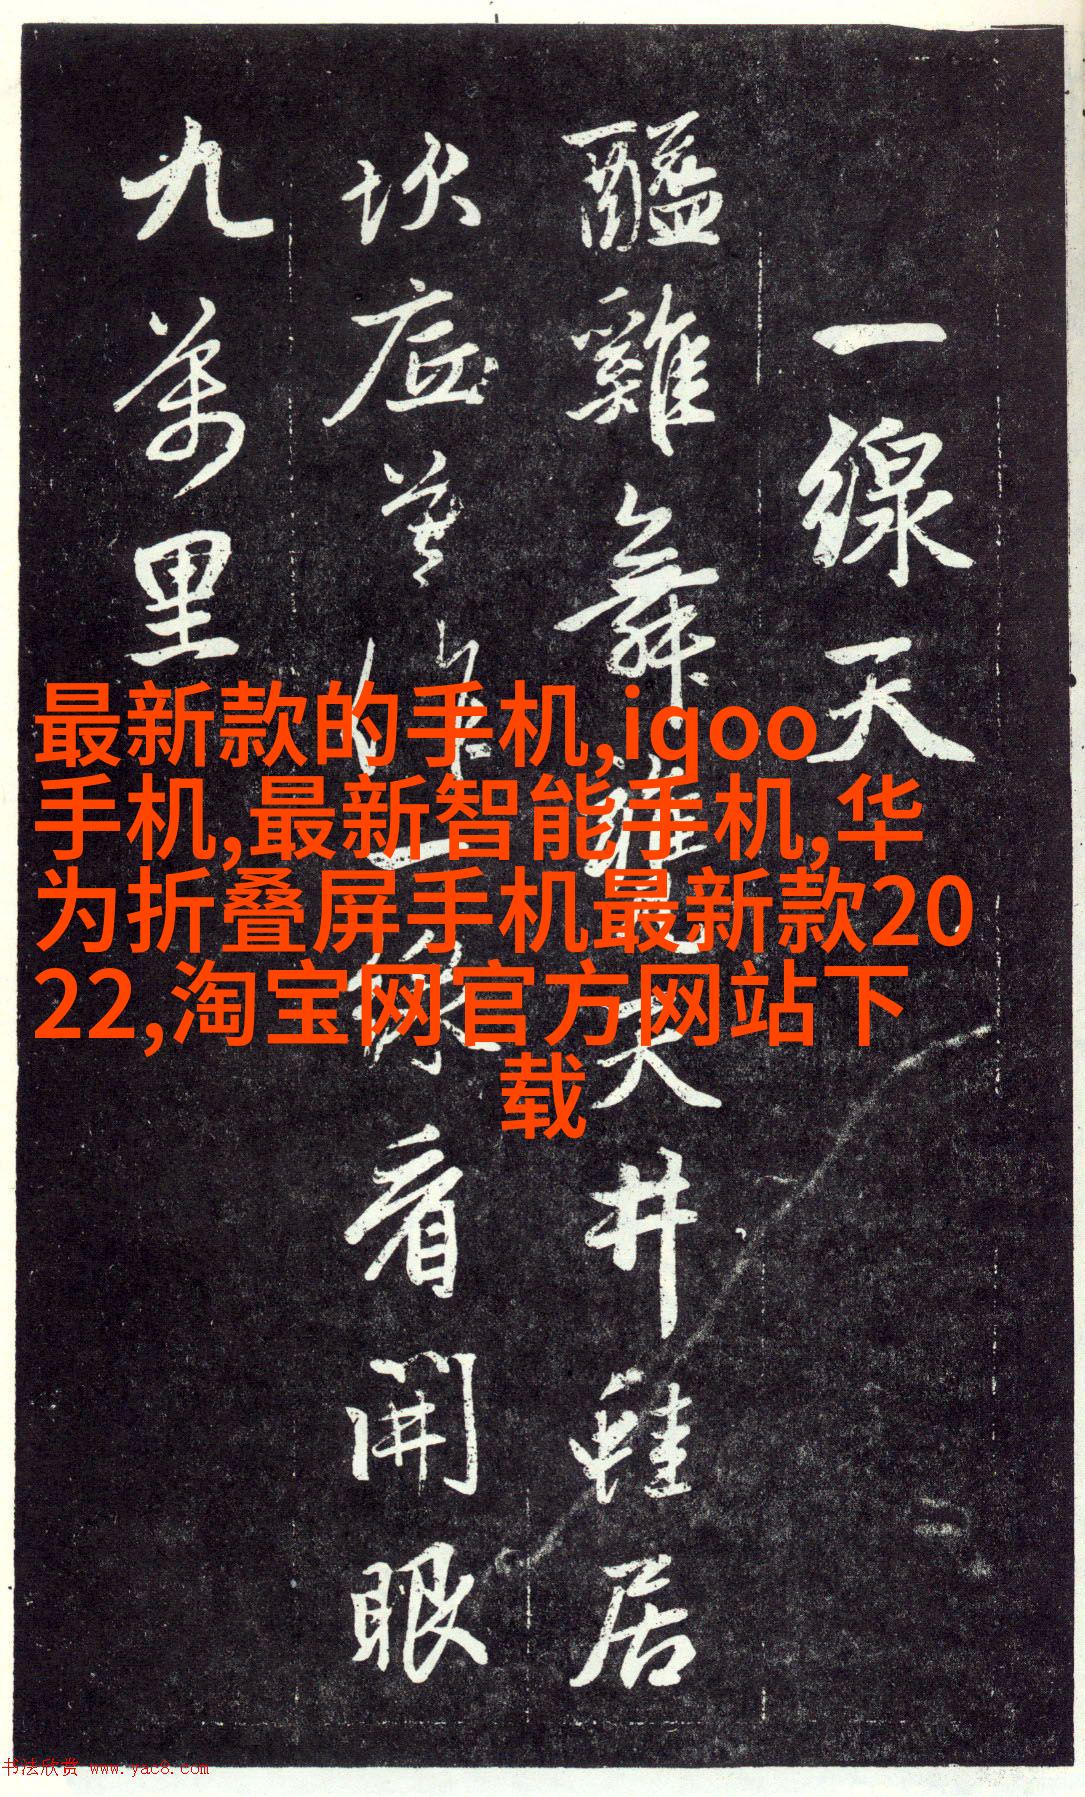 一線天
醯雞舞甕天井蛙居
坎底莫作一線看開眼
九萬里
最新款的手机,igoo
手机,最新智能手机,华
为折叠屏手机最新款20
22,淘宝网官方网站下
载
书法欣赏 www.yac8.com